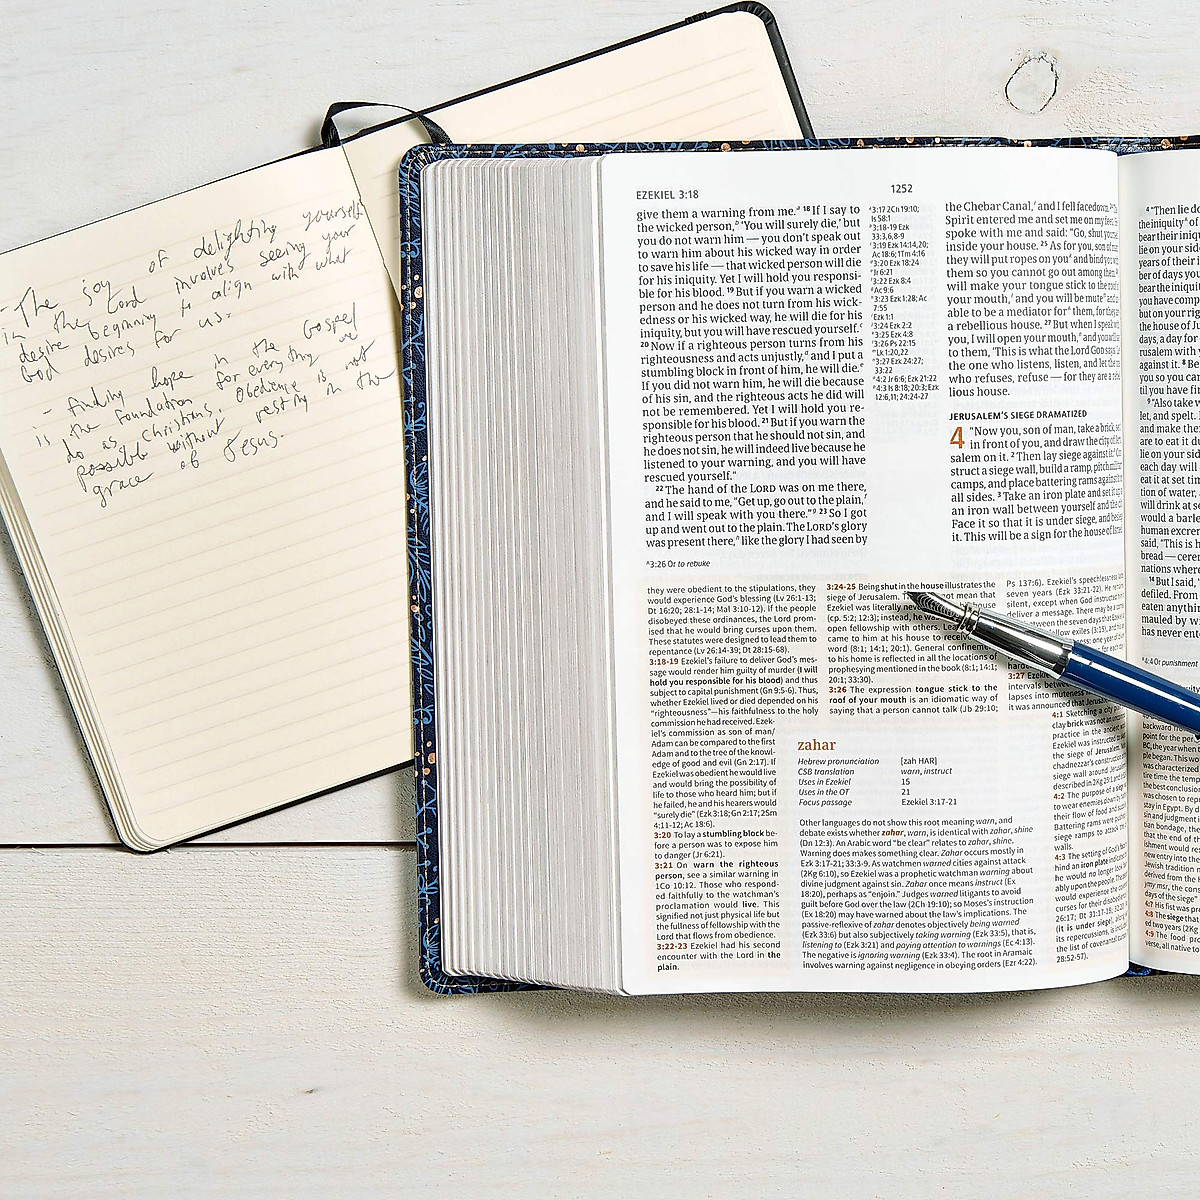 - The joy of delighting yourself
in the Lord involves seeing your
desire beginning to align with what
God desires for us.
- Finding hope in the Gospel
is the foundation for everything we
do as Christians. Obedience is not
possible without resting in the
grace of Jesus.
EZEKIEL 3:18
1252
give them a warning from me. 18 If I say to
the wicked person, ‘You will surely die,’ but
you do not warn him — you don’t speak out
to warn him about his wicked way in order
to save his life — that wicked person will die
for his iniquity. Yet I will hold you responsi-
ble for his blood. 19 But if you warn a wicked
person and he does not turn from his wick-
edness or his wicked way, he will die for his
iniquity, but you will have rescued yourself.
20 Now if a righteous person turns from his
righteousness and acts unjustly, and I put a
stumbling block in front of him, he will die.
If you did not warn him, he will die because
of his sin, and the righteous acts he did will
not be remembered. Yet I will hold you re-
sponsible for his blood. 21 But if you warn the
righteous person that he should not sin, and
he does not sin, he will indeed live because he
listened to your warning, and you will have
rescued yourself.”
22 The hand of the LORD was on me there,
and he said to me, “Get up, go out to the plain,
and I will speak with you there.” 23 So I got
up and went out to the plain. The LORD’s glory
was present there, like the glory I had seen by
3:17 2Ch 19:10;
Is 58:1
3:18-19 Ezk
33:3,6,8-9
3:19 Ezk 14:14,20;
Ac 18:6; 1Tm 4:16
3:20 Ezk 18:24
Jr 6:21
3:22 Ezk 8:4
Ac 9:6
3:23 Ezk 1:28; Ac
7:55
Ezk 1:1
3:24 Ezk 2:2
3:25 Ezk 4:8
3:26 Ps 22:15
Lk 1:20,22
3:27 Ezk 24:27;
33:22
4:2 Jr 6:6; Ezk 21:22
4:3 Is 8:18; 20:3; Ezk
12:6,11; 24:24-27
the Chebar Canal, and I fell facedown.
Spirit entered me and set me on my feet.
spoke with me and said: “Go, shut yourself
inside your house. 25 As for you, son of man,
they will put ropes on you and bind you with
them so you cannot go out among them.
will make your tongue stick to the roof of
your mouth, and you will be mute and
able to be a mediator for them, for they
a rebellious house. 27 But when I speak with
you, I will open your mouth, and you will
to them, ‘This is what the Lord GOD says.’
the one who listens, listen, and let the
who refuses, refuse — for they are a rebel-
lious house.
JERUSALEM’S SIEGE DRAMATIZED
4 “Now you, son of man, take a brick, set
in front of you, and draw the city of Jeru-
salem on it. 2 Then lay siege against it:
struct a siege wall, build a ramp, pitch military
camps, and place battering rams against
all sides. 3 Take an iron plate and set it up
an iron wall between yourself and the
Face it so that it is under siege, and besiege
it. This will be a sign for the house of Israel.
3:26 Or to rebuke
they were obedient to the stipulations, they
would experience God’s blessing (Lv 26:1-13;
Dt 16:20; 28:1-14; Mal 3:10-12). If the people
disobeyed these ordinances, the Lord prom-
ised that he would bring curses upon them.
These statutes were designed to lead them to
repentance (Lv 26:14-39; Dt 28:15-68).
3:18-19 Ezekiel’s failure to deliver God’s mes-
sage would render him guilty of murder (I will
hold you responsible for his blood) and thus
subject to capital punishment (Gn 9:5-6). Thus,
whether Ezekiel lived or died depended on his
“righteousness”—his faithfulness to the holy
commission he had received. Ezek-
iel’s commission as son of man/
Adam can be compared to the first
Adam and to the tree of the knowl-
edge of good and evil (Gn 2:17). If
Ezekiel was obedient he would live
and would bring the possibility of
life to those who heard him; but if
he failed, he and his hearers would
“surely die” (Ezk 3:18; Gn 2:17; 2Sm
4:11-12; Ac 18:6).
3:20 To lay a stumbling block be-
fore a person was to expose him
to danger (Jr 6:21).
3:21 On warn the righteous
person, see a similar warning in
1Co 10:12. Those who respond-
ed faithfully to the watchman’s
proclamation would live. This
signified not just physical life but
the fullness of fellowship with the
Lord that flows from obedience.
3:22-23 Ezekiel had his second
encounter with the Lord in the
plain.
3:24-25 Being shut in the house illustrates the
siege of Jerusalem. not mean that
Ezekiel was literally house
(cp. 5:2; 12:3); instead, he
open fellowship with others.
came to him at his house to
word (8:1; 14:1; 20:1). General
to his home is reflected in all the locations of
prophesying mentioned in the book (8:1; 14:1;
20:1; 33:30).
3:26 The expression tongue stick to the
roof of your mouth is an idiomatic way of
saying that a person cannot talk (Jb 29:10;
zahar
Hebrew pronunciation [zah HAR]
CSB translation warn, instruct
Uses in Ezekiel 15
Uses in the OT 21
Focus passage Ezekiel 3:17-21
Other languages do not show this root meaning warn, and
debate exists whether zahar, warn, is identical with zahar, shine
(Dn 12:3). An Arabic word “be clear” relates to zahar, shine.
Warning does makes something clear. Zahar occurs mostly in
Ezk 3:17-21; 33:3-9. As watchmen warned cities against attack
(2Kg 6:10), so Ezekiel was a prophetic watchman warning about
divine judgment against sin. Zahar once means instruct (Ex
18:20), perhaps as “enjoin.” Judges warned litigants to avoid
guilt before God over the law (2Ch 19:10); so Moses’s instruction
(Ex 18:20) may have warned about the law’s implications. The
passive-reflexive of zahar denotes objectively being warned
(Ezk 33:6) but also subjectively taking warning (Ezk 33:5), that is,
listening to (Ezk 3:21) and paying attention to warnings (Ec 4:13).
The negative is ignoring warning (Ezk 33:4). The root in Aramaic
involves warning against negligence in obeying orders (Ezr 4:22).
Ps 137:6). Ezekiel’s speechlessness
seven years (Ezk 33:21-22). He
silent, except when God instructed
deliver a message. There may be a
between the seven days that
fellow exiles (3:15), and
3:27
intervals
lapses into muteness
it was announced that
4:1 Sketching a city
clay brick was not an
practice in the ancient
Ezekiel was instructed to
the siege of Jerusalem.
chadnezzar’s construction of
siege wall around Jerusalem
described in 2Kg 25:1
4:2 The purpose of a siege
to wear enemies down by
their flow of food and
Battering rams were
siege ramps to attack
walls.
4:3 The setting of God’s
hind an iron plate
he would no longer
ably upon the people.
would experience the
curses for their
26:17; Dt 31:17-18;
(it is under siege),
its repercussions,
the list of covenantal
28:52-57).
4 “Then lie
the iniquity
bear their
lie on your side
years of their
ber of days you
bear the iniquity
you have comp
but on your rig
the house of Ju
days, a day for
rusalem with
against it. 8 Be
you so you can
til you have fin
9 “Also take w
let, and spelt.
and make the
are to eat it du
lie on your side
each day will
eat it at set tim
tion of water,
will drink at se
would a barle
human excre
said, “This is h
bread — cerem
nations where
14 But I said,
defiled. From
eaten anythin
mauled by wi
has never ente
4:4 Or punishment